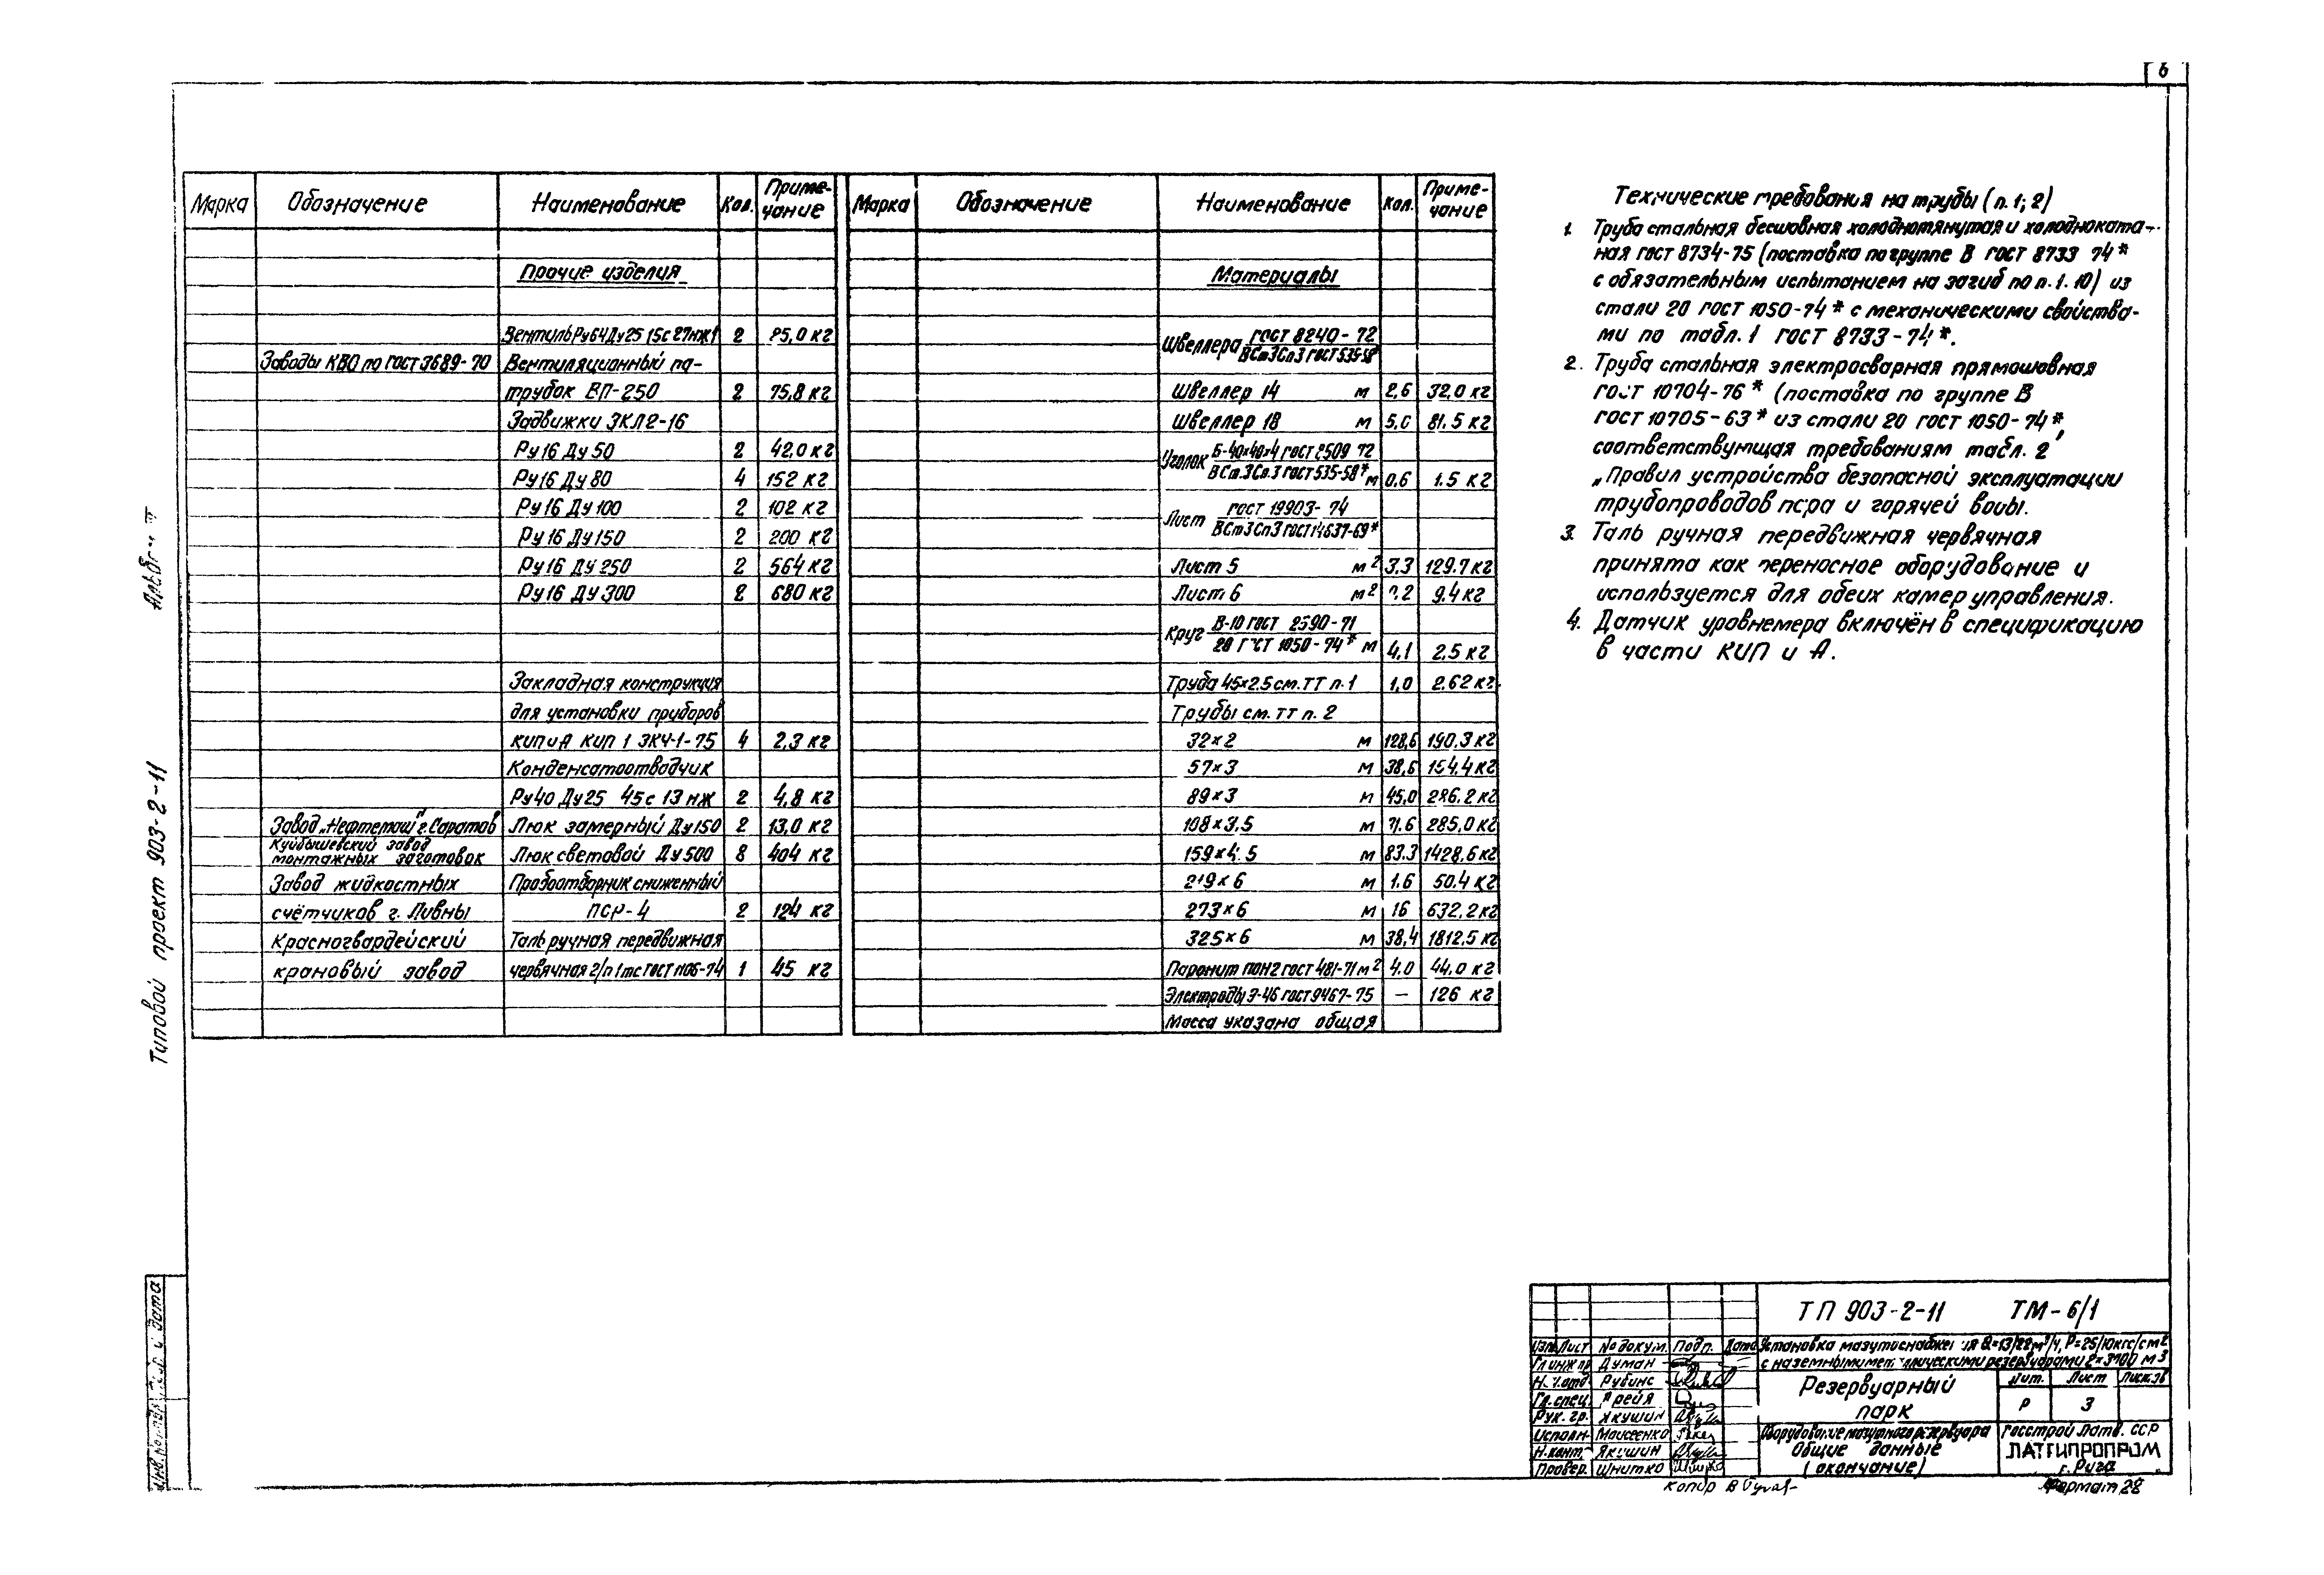 6
Марка Обозначение Наименование Кол. Приме-чание
Прочие изделия
Вентиль Ру64 Ду25 15с27нж1 2 25,0 кг
Заводы КВО по ГОСТ 3689-70 Вентиляционный па-
трубок ВП-250 2 75,8 кг
Задвижки ЗКЛ2-16
Ру16 Ду 50 2 42,0 кг
Ру16 Ду 80 4 152 кг
Ру16 Ду 100 2 102 кг
Ру16 Ду 150 2 200 кг
Ру16 Ду 250 2 564 кг
Ру16 Ду 300 2 680 кг
Закладная конструкция
для установки приборов
КИПиА КИП 1 ЗК4-1-75 4 2,3 кг
Конденсатоотводчик
Ру40 Ду25 45с 13 нж 2 4,8 кг
Завод „Нефтемаш" г. Саратов Люк замерный Ду150 2 13,0 кг
Куйбышевский завод
монтажных заготовок Люк световой Ду500 8 404 кг
Завод жидкостных Пробоотборник сниженный
счётчиков г. Ливны ПСР-4 2 124 кг
Красногвардейский Таль ручная передвижная
крановый завод червячная г/п 1тс ГОСТ 1106-74 1 45 кг
Марка Обозначение Наименование Кол. Приме-чание
Материалы
Швеллера ГОСТ 8240-72
ВСт3Сп3 ГОСТ 535-58
Швеллер 14 м 2,6 32,0 кг
Швеллер 18 м 5,0 81.5 кг
Уголок Б-40×40×4 ГОСТ 8509 72
ВСт.3Сп.3 ГОСТ 535-58* м 0,6 1.5 кг
Лист ГОСТ 19903-74
ВСт3Сп3 ГОСТ 14637-69*
Лист 5 м2 3.3 129.7 кг
Лист 6 м2 2 9.4 кг
Круг В-10 ГОСТ 2590-71
20 ГОСТ 1050-74* м 4,1 2,5 кг
Труба 45×2.5 см. ТТ п.1 1,0 2.62 кг
Трубы см. ТТ п. 2
32×2 м 128,6 190,3 кг
57×3 м 38,6 154.4 кг
89×3 м 45,0 286.2 кг
108×3,5 м 31.6 285,0 кг
159×4.5 м 83.3 1428,6 кг
219×6 м 1.6 50.4 кг
273×6 м 16 632.2 кг
325×6 м 38,4 1812,5 кг
Паронит ПОН2 ГОСТ 481-71 м2 4.0 44.0 кг
Электроды Э-46 ГОСТ 9467-75 — 126 кг
Масса указана общая
Технические требования на трубы (п. 1; 2)
1. Труба стальная бесшовная холоднотянутая и холодноката-
ная ГОСТ 8734-75 (поставка по группе В ГОСТ 8733 74*
с обязательным испытанием на загиб по п. 1. 10) из
стали 20 ГОСТ 1050-74* с механическими свойства-
ми по табл. 1 ГОСТ 8733-74*.
2. Труба стальная электросварная прямошовная
ГОСТ 10704-76* (поставка по группе В
ГОСТ 10705-63* из стали 20 ГОСТ 1050-74*,
соответствующая требованиям табл. 2
„Правил устройства безопасной эксплуатации
трубопроводов пара и горячей воды.
3. Таль ручная передвижная червячная
принята как переносное оборудование и
используется для обеих камер управления.
4. Датчик уровнемера включён в спецификацию
в части КИП и А.
Типовой проект 903-2-11
ТП 903-2-11 ТМ-6/1
Изм. Лист № докум. Подп. Дата
Установка мазутоснабжения Q=13/22м3/ч, Р=25/10кгс/см2
с наземными металлическими резервуарами 2×3000 м3
Гл.инж.пр. Думан
Н. отд. Рубинс
Гл. спец. Арейя
Рук. гр. Якушин
Исполн. Моисеенко
Н.конт. Якушин
Провер. Шнитко
Резервуарный
парк
Лит. Лист Листов
Р 3
Оборудование мазутного резервуара
Общие данные
(окончание)
Госстрой Латв. ССР
ЛАТГИПРОПРОМ
г. Рига
Копир
Формат 28